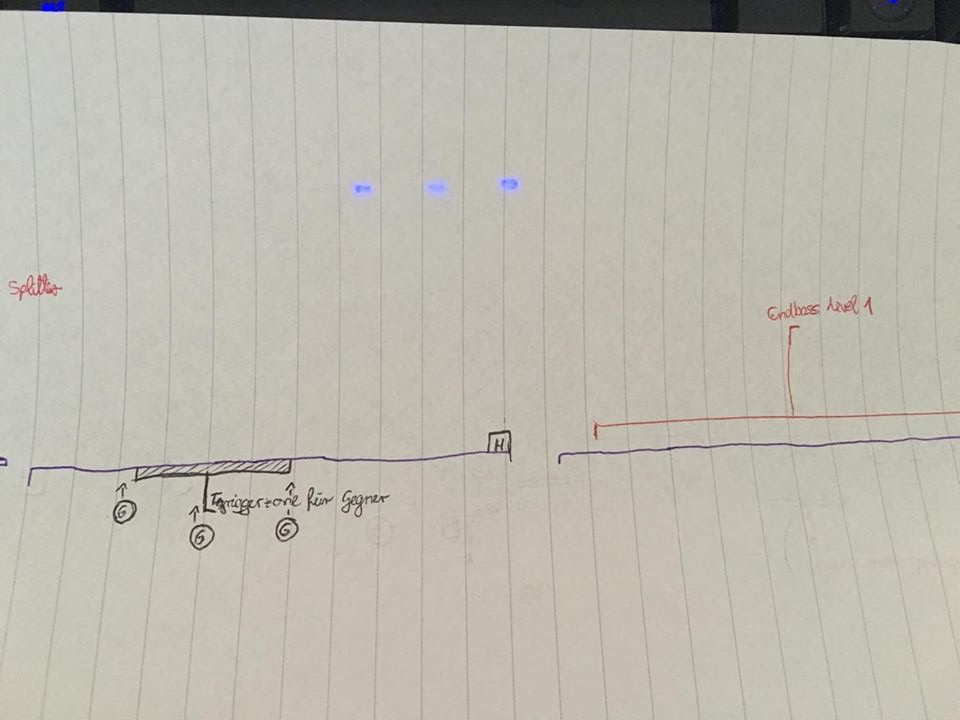 Splitter
Endboss Level 1
H
Triggerzone für Gegner
G
G
G